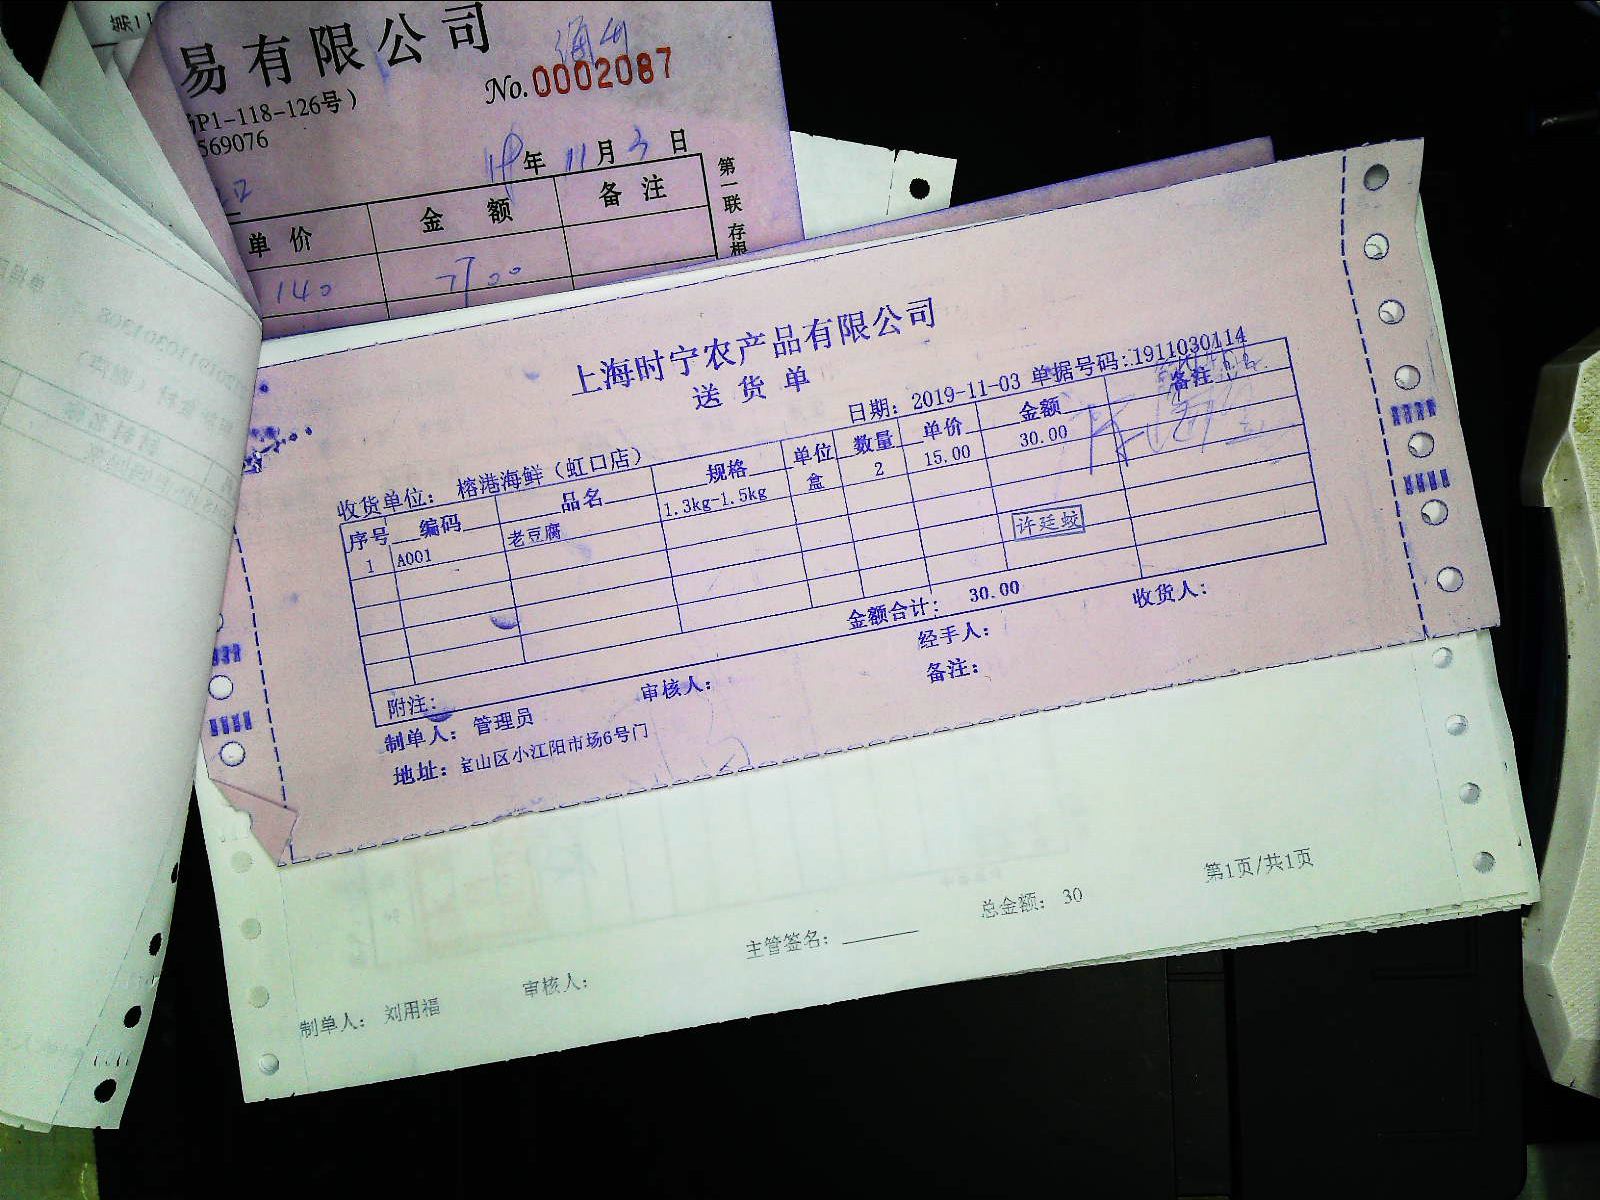 易有限公司
No. 0002087
P1-118-126号)
569076
年 11月3日
单价 金额 备注
第一联 存根
140 7700
上海时宁农产品有限公司
送货单
日期: 2019-11-03 单据号码: 1911030114
收货单位: 榕港海鲜（虹口店）
序号 编码 品名 规格 单位 数量 单价 金额 备注
1 A001 老豆腐 1.3kg-1.5kg 盒 2 15.00 30.00
许廷蛟
金额合计: 30.00
附注: 审核人: 经手人: 收货人:
制单人: 管理员 备注:
地址: 宝山区小江阳市场6号门
第1页/共1页
总金额: 30
主管签名:
审核人:
制单人: 刘用福